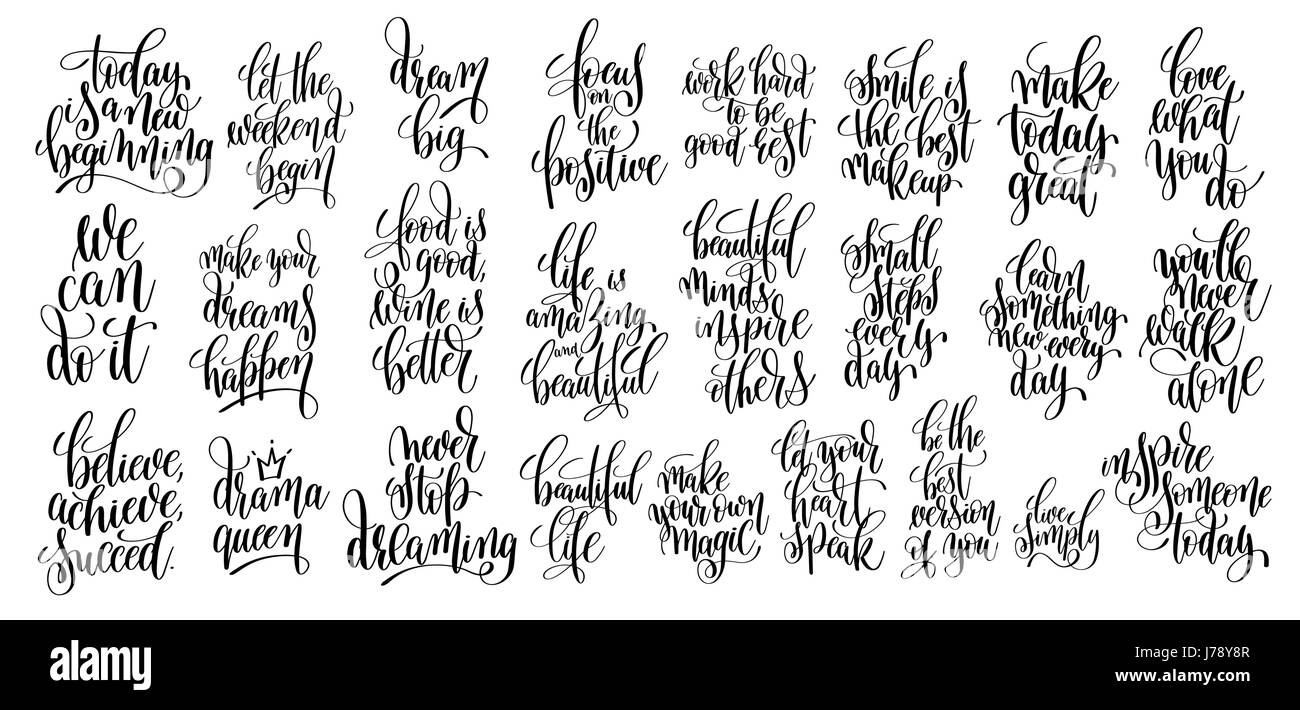 today
is a new
beginning
let the
weekend
begin
dream
big
focus
on
the
positive
work hard
to be
good rest
smile is
the best
makeup
make
today
great
love
what
you
do
we
can
do it
make your
dreams
happen
food is
good,
wine is
better
life is
amazing
and
beautiful
beautiful
minds
inspire
others
small
steps
every
day
learn
something
new every
day
you'll
never
walk
alone
believe,
achieve,
succeed.
drama
queen
never
stop
dreaming
beautiful
life
make
your own
magic
let your
heart
speak
be the
best
version
of you
live
simply
inspire
someone
today
a
alamy
Image ID: J78Y8R
www.alamy.com